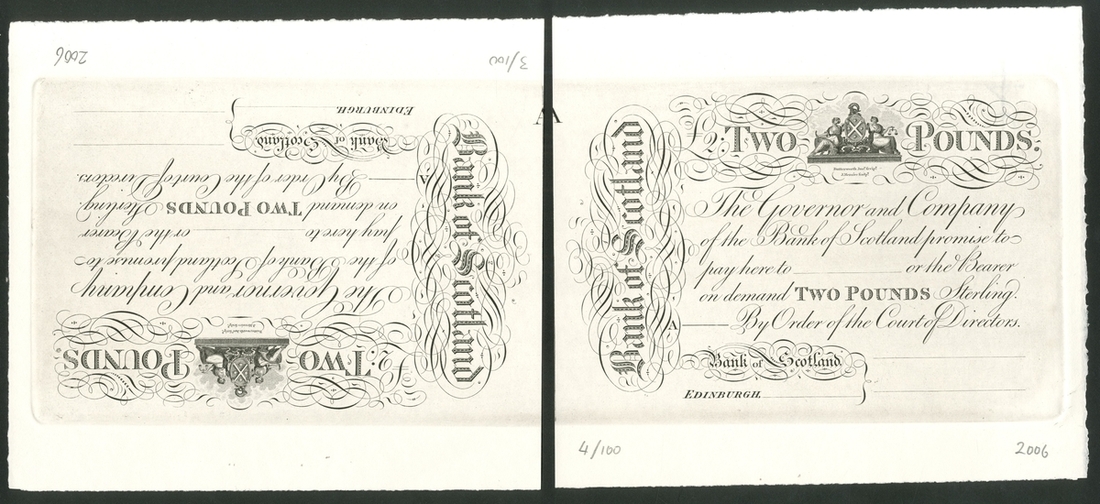 2006
3/100
£2: TWO POUNDS.
The Governor and Company
of the Bank of Scotland promise to
pay here to or the Bearer
on demand TWO POUNDS Sterling.
A By Order of the Court of Directors.
Bank of Scotland
EDINBURGH,
Bank of Scotland
A
Bank of Scotland
£2: TWO POUNDS.
The Governor and Company
of the Bank of Scotland promise to
pay here to or the Bearer
on demand TWO POUNDS Sterling.
A By Order of the Court of Directors.
Bank of Scotland
EDINBURGH,
4/100
2006